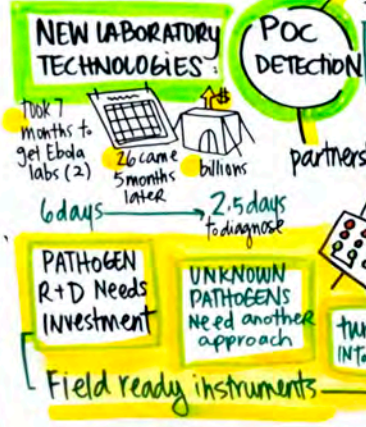 NEW LABORATORY
TECHNOLOGIES:
POC
DETECTION
took 7
months to
get Ebola
labs (2)
26 came
5 months
later
$
billions
partners
6 days → 2.5 days
to diagnose
PATHOGEN
R+D Needs
INvestment
UNKNOWN
PATHOGENS
Need another
approach
Field ready instruments